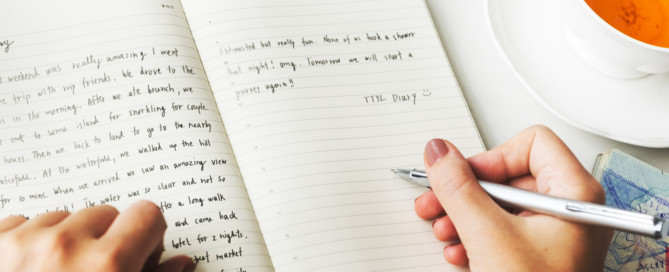 weekend was really amazing. I went
trip with my friends. We drove to the
in the morning. After we ate brunch, we
out to some island for snorkling for couple
hours. Then we back to land to go to the nearby
waterfall. At the waterfall, we walked up the hill
for 10 mins. When we arrived we saw an amazing view
waterfall! The water was so clear and not so
after a long walk
and came back
hotel for 2 nights.
market
exhausted but really fun. None of us took a shower
that night! omg. Tomorrow we will start a
journey again!!
TTYL Diary